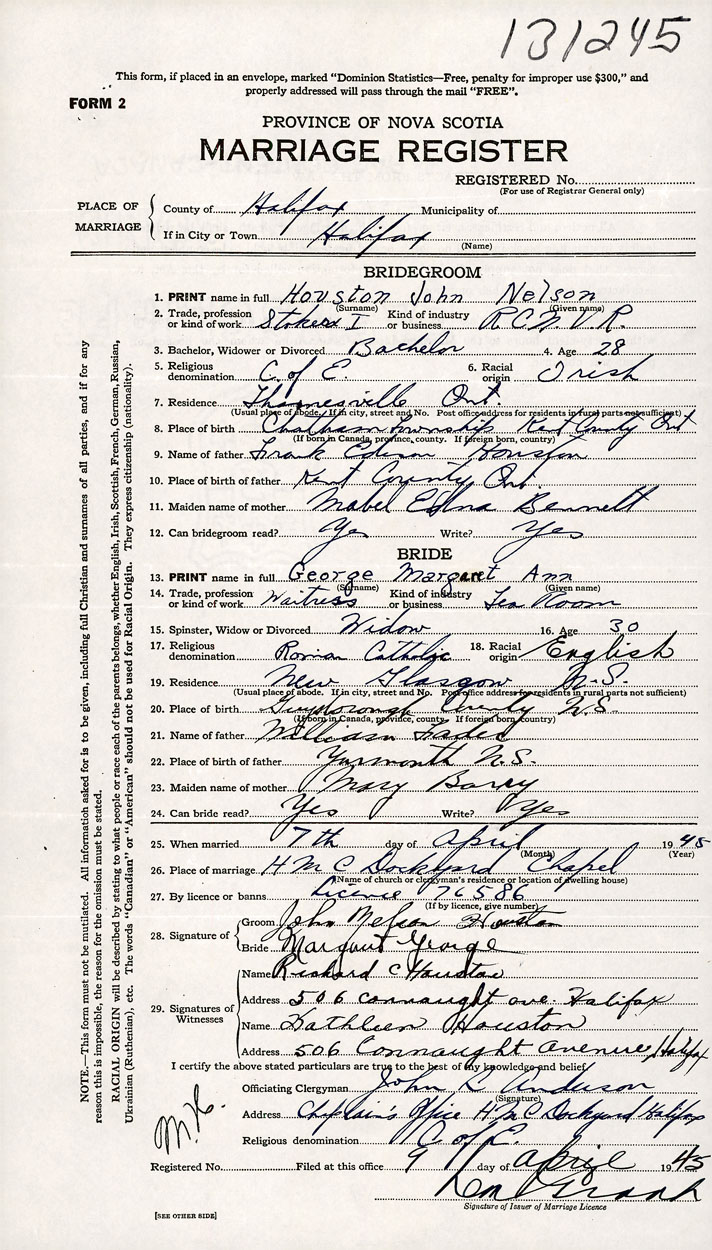 131245
This form, if placed in an envelope, marked "Dominion Statistics—Free, penalty for improper use $300," and
properly addressed will pass through the mail "FREE".
FORM 2
PROVINCE OF NOVA SCOTIA
MARRIAGE REGISTER
REGISTERED No.
(For use of Registrar General only)
PLACE OF MARRIAGE
County of Halifax Municipality of
If in City or Town Halifax
(Name)
BRIDEGROOM
1. PRINT name in full Houston John Nelson
(Surname) (Given name)
2. Trade, profession or kind of work Stoker I Kind of industry or business R.C.N.V.R.
3. Bachelor, Widower or Divorced Bachelor 4. Age 28
5. Religious denomination C. of E. 6. Racial origin Irish
7. Residence Thamesville Ont.
(Usual place of abode. If in city, street and No. Post office address for residents in rural parts not sufficient)
8. Place of birth Chatham Township Kent County Ont
(If born in Canada, province, county. If foreign born, country)
9. Name of father Frank Edison Houston
10. Place of birth of father Kent County, Ont.
11. Maiden name of mother Mabel Edna Bennett
12. Can bridegroom read? Yes Write? Yes
BRIDE
13. PRINT name in full George Margaret Ann
(Surname) (Given name)
14. Trade, profession or kind of work Waitress Kind of industry or business Tea Room
15. Spinster, Widow or Divorced Widow 16. Age 30
17. Religious denomination Roman Catholic 18. Racial origin English
19. Residence New Glasgow N.S.
(Usual place of abode. If in city, street and No. Post office address for residents in rural parts not sufficient)
20. Place of birth Guysborough County N.S.
(If born in Canada, province, county. If foreign born, country)
21. Name of father William
22. Place of birth of father Yarmouth N.S.
23. Maiden name of mother Mary Barry
24. Can bride read? Yes Write? Yes
25. When married 7th day of April 1945
(Month) (Year)
26. Place of marriage H M C Dockyard Chapel
(Name of church or clergyman's residence or location of dwelling house)
27. By licence or banns Licence 76586
(If by licence, give number)
28. Signature of
Groom John Nelson Houston
Bride Margaret George
29. Signatures of Witnesses
Name Richard C Houston
Address 506 Connaught ave. Halifax
Name Kathleen Houston
Address 506 Connaught Avenue Halifax
I certify the above stated particulars are true to the best of my knowledge and belief
Officiating Clergyman John L. Anderson
(Signature)
Address Chaplain's Office H.M.C Dockyard Halifax
Religious denomination C. of E.
Registered No. Filed at this office 9 day of April 1945
Signature of Issuer of Marriage Licence
[SEE OTHER SIDE]
NOTE.—This form must not be mutilated. All information asked for is to be given, including full Christian and surnames of all parties, and if for any
reason this is impossible, the reason for the omission must be stated.
RACIAL ORIGIN will be described by stating to what people or race each of the parents belongs, whether English, Irish, Scottish, French, German, Russian,
Ukrainian (Ruthenian), etc. The words "Canadian" or "American" should not be used for Racial Origin. They express citizenship (nationality).